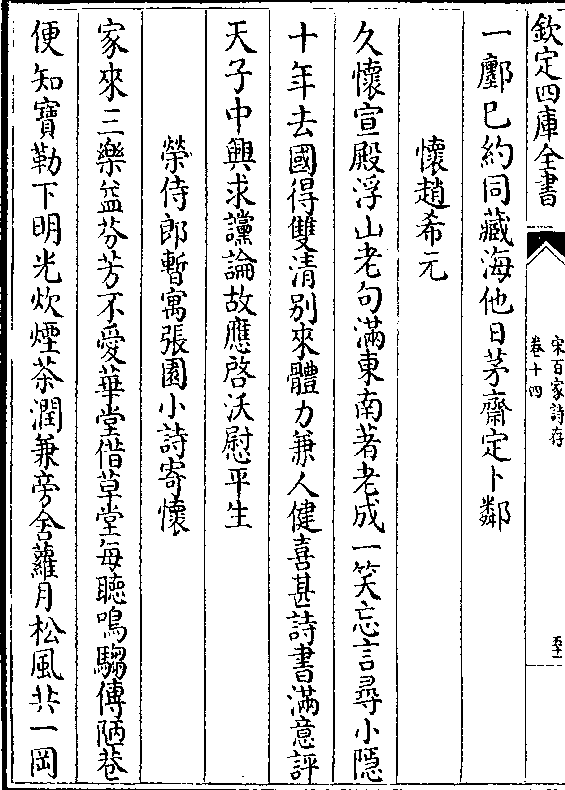 欽定四庫全書
宋百家詩存
卷十四
一鄽已約同藏海他日茅齋定卜鄰
懷趙希元
久懷宣殿浮山老句滿東南著老成一笑忘言尋小隱
十年去國得雙清别來體力兼人健喜甚詩書滿意評
天子中興求讜論故應啓沃慰平生
榮侍郎暫寓張園小詩寄懷
家來三樂益芬芳不愛華堂借草堂每聽鳴騶傅陋巷
便知寶勒下明光炊煙茶潤兼旁舍蘿月松風共一岡